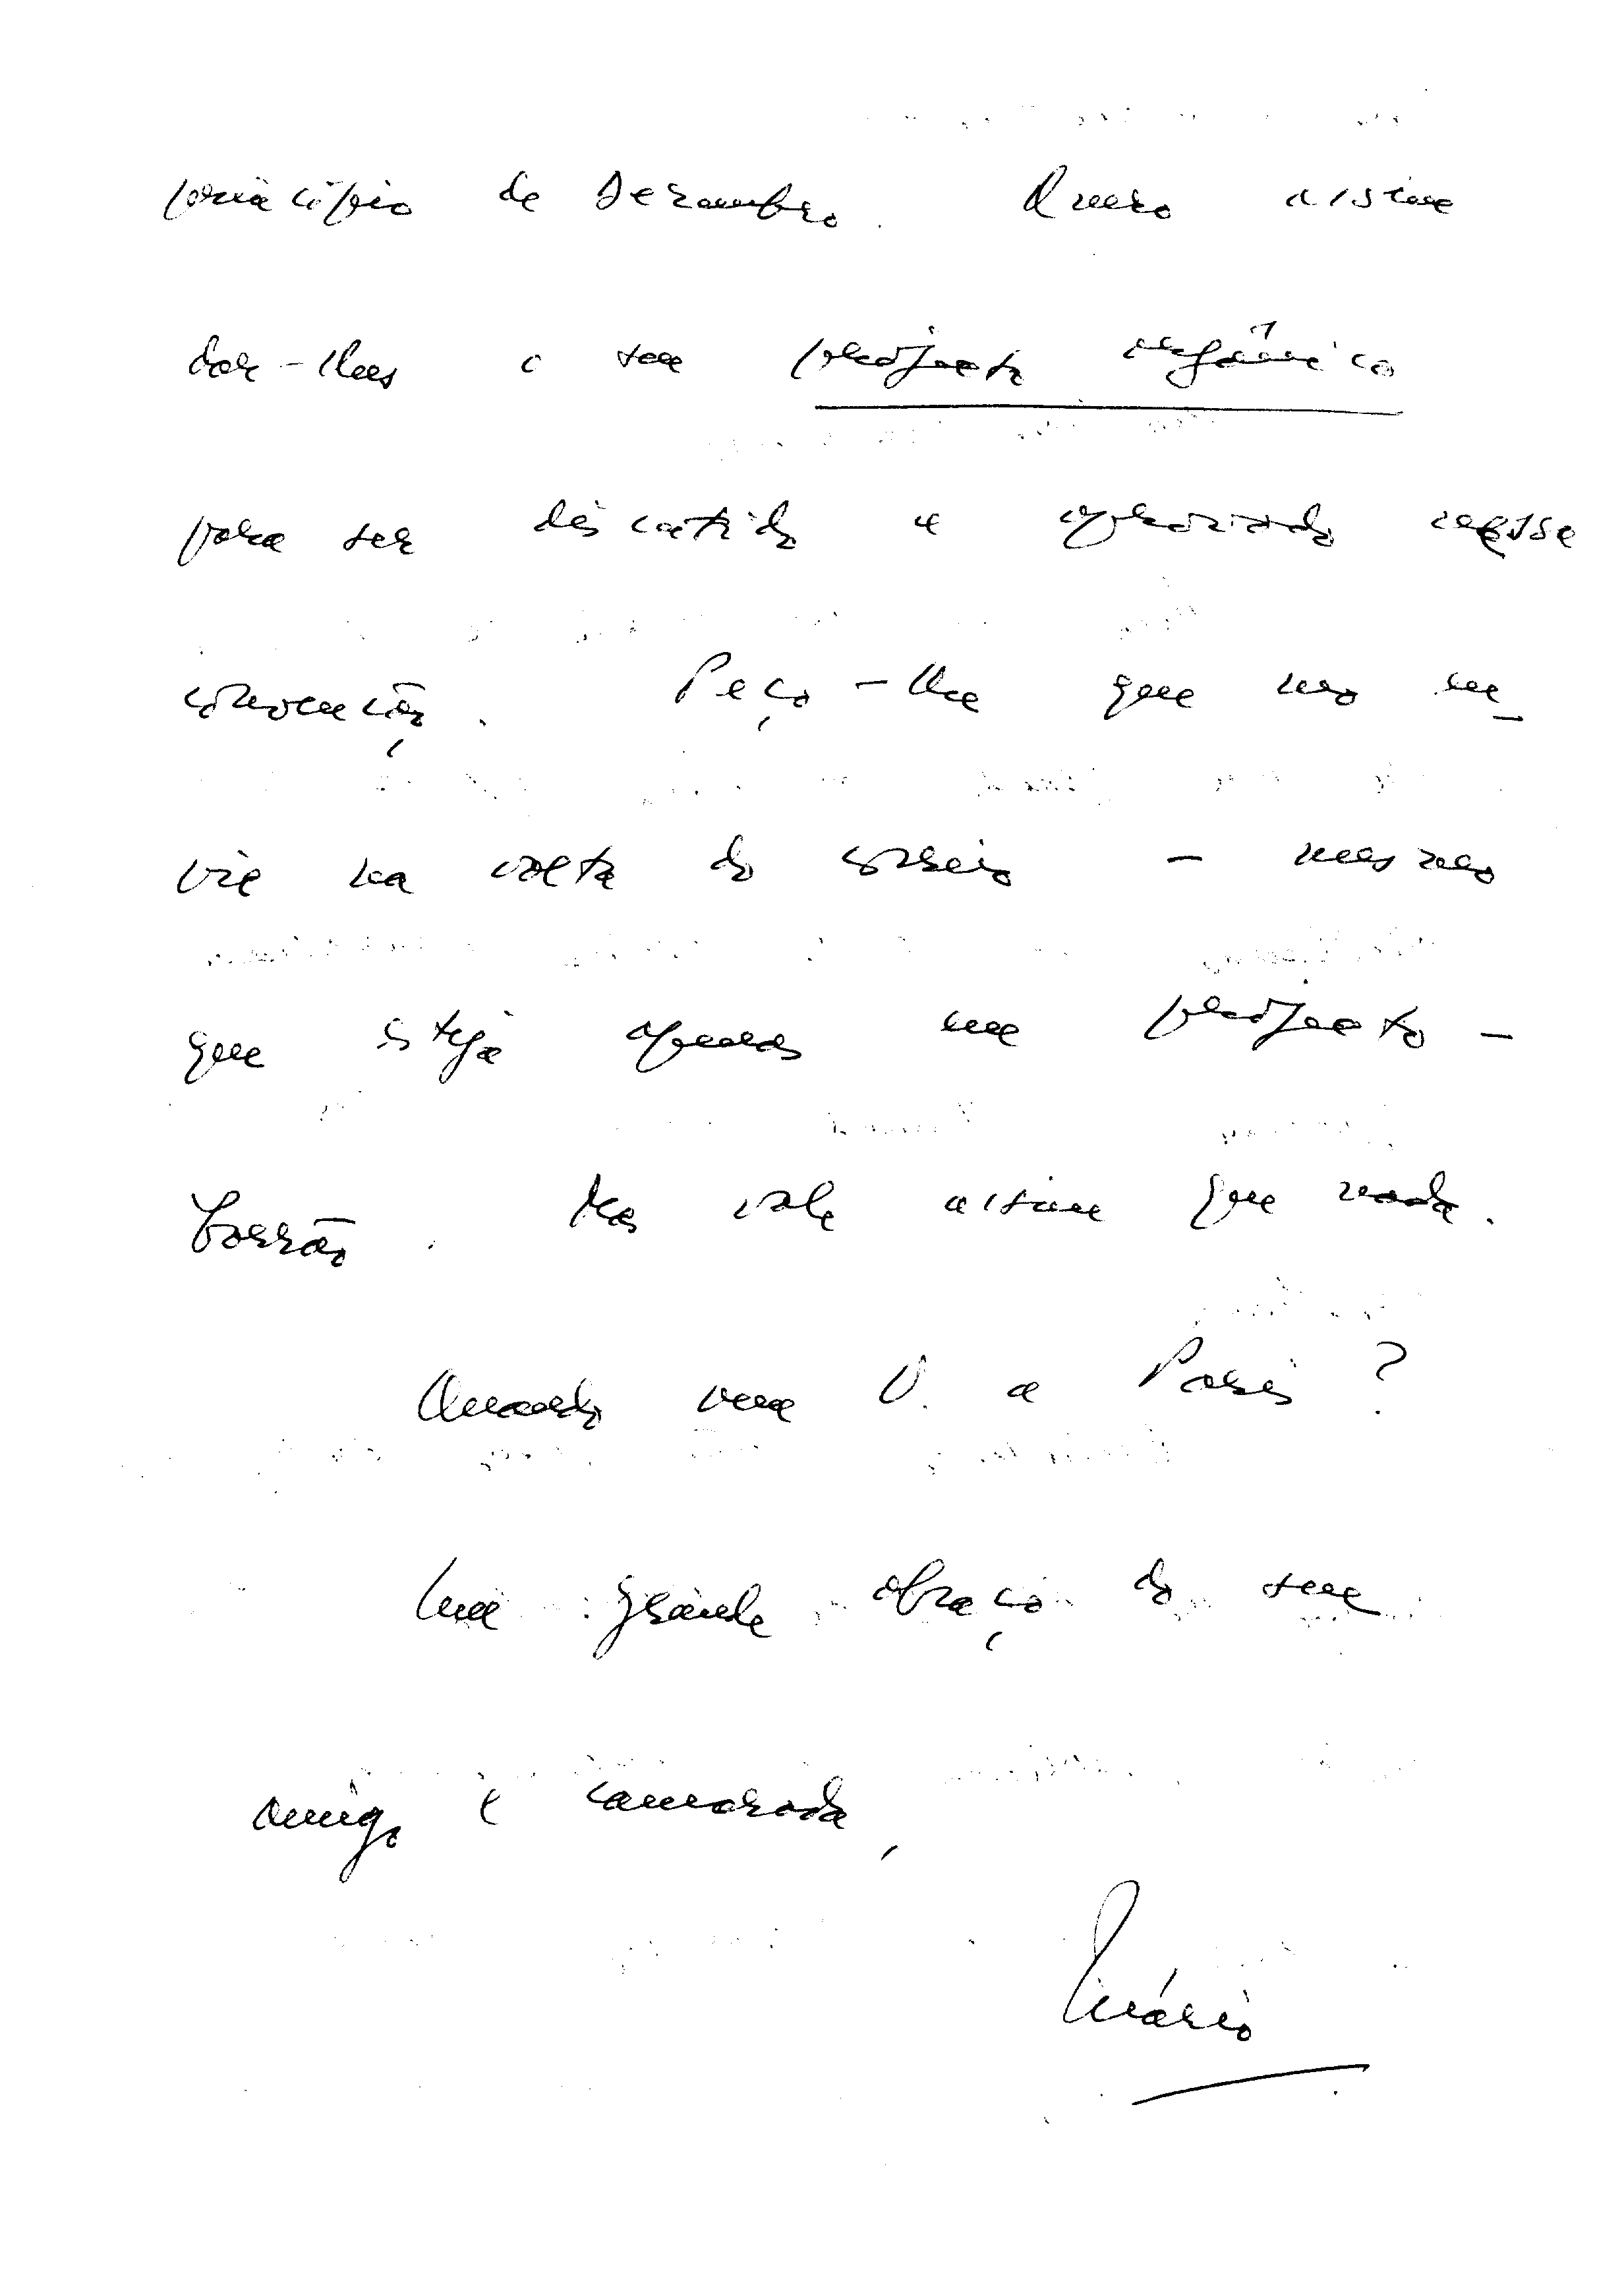 princípio de Dezembro. Quero assim
dar-lhes o seu projecto orgânico
para ser discutido e aprovado nessa
convenção. Peço-lhe que mo en-
vie na volta do correio – mesmo
que esteja apenas em projecto-
borrão. Mas vale assim que nada.
Quando vem V. a Paris?
Um grande abraço do seu
amigo e camarada,
Mário